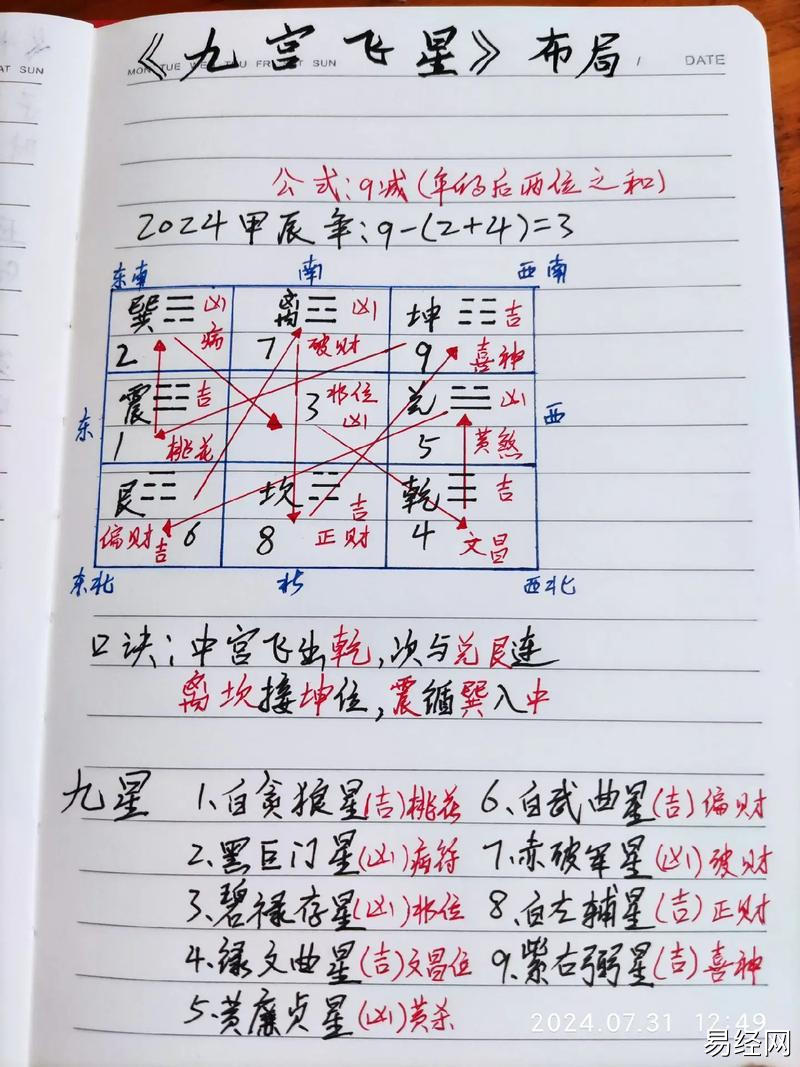 《九宫飞星》布局
MON TUE WED THU FRI SAT SUN / DATE
AT SUN
公式:9减(年的后两位之和)
2024甲辰年:9-(2+4)=3
东南 南 西南
巽☴凶 离☲凶 坤☷吉
2 病 7 破财 9 喜神
东 震☳吉 3 邪位 兑☱凶 西
凶
1 桃花 5 黄煞
艮☶ 坎☵吉 乾☰吉
偏财吉 6 8 正财 4 文昌
东北 北 西北
口诀:中宫飞出乾,次与兑艮连
离坎接坤位,震循巽入中
九星 1、白贪狼星(吉)桃花 6、白武曲星(吉)偏财
2、黑巨门星(凶)病符 7、赤破军星(凶)破财
3、碧禄存星(凶)邪位 8、白左辅星(吉)正财
4、绿文曲星(吉)文昌位 9、紫右弼星(吉)喜神
5、黄廉贞星(凶)黄杀
2024.07.31 12:49
易经网